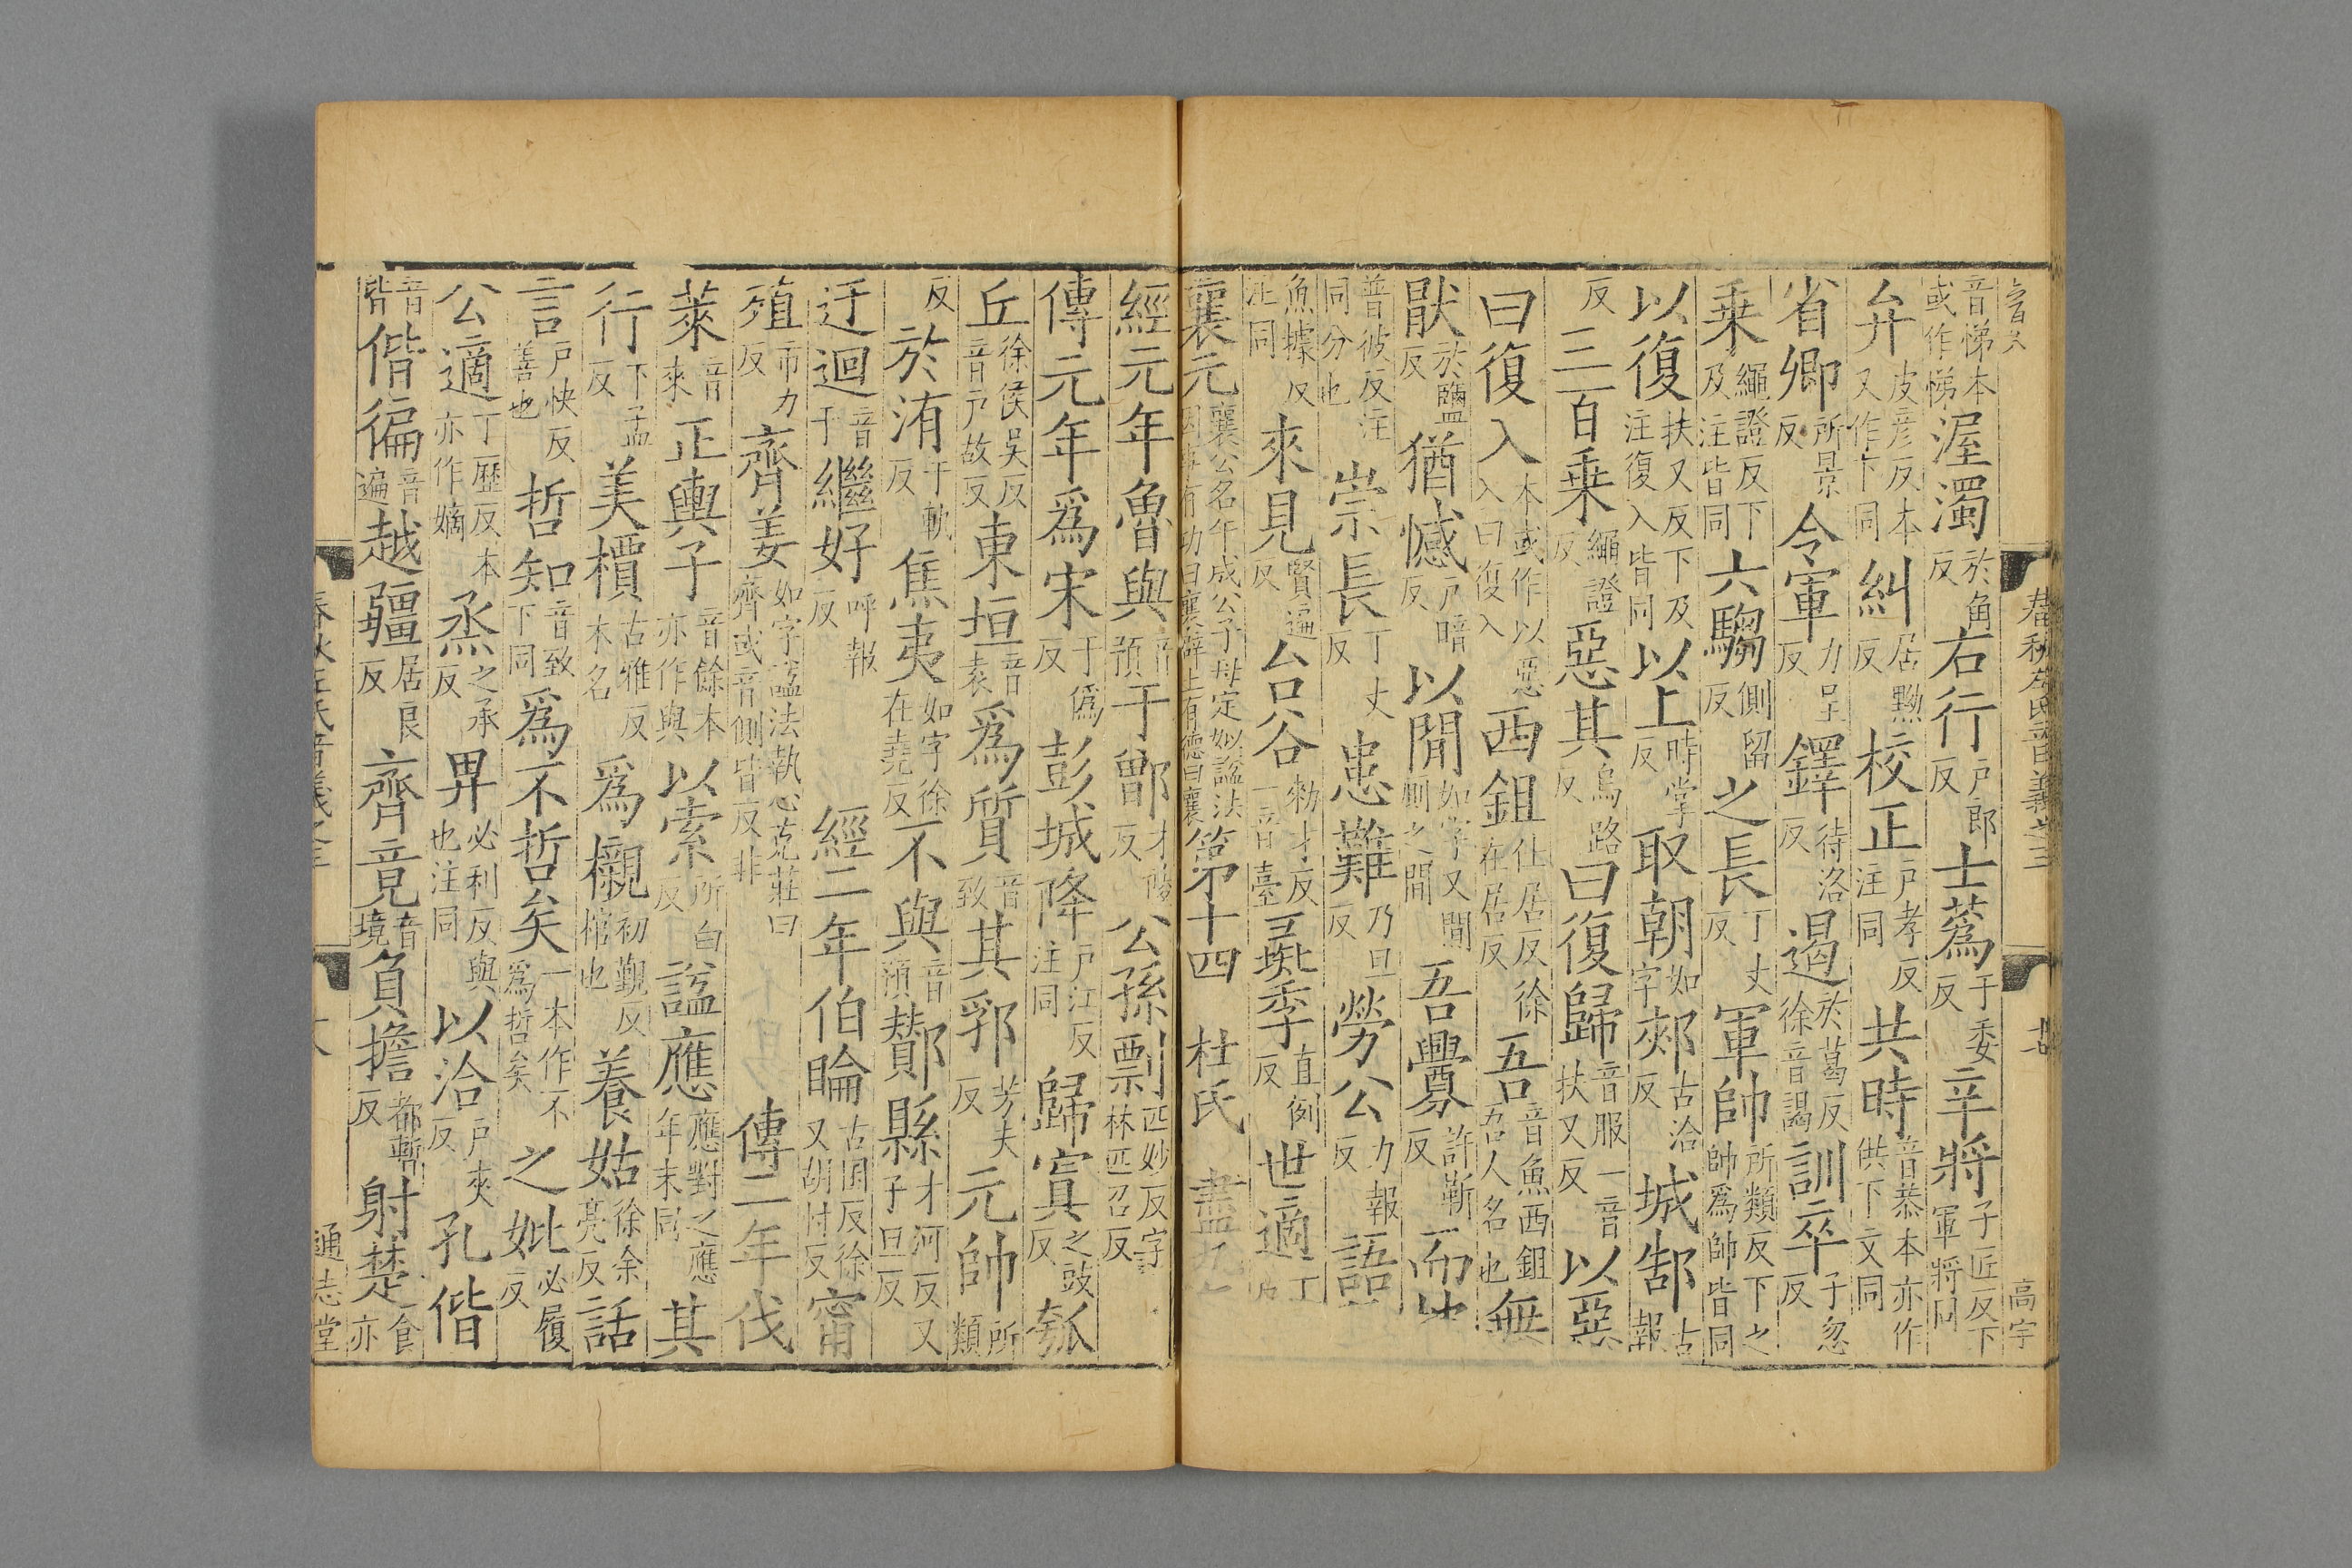 音悌本或作悌渥濁於角反右行戶郎反士蒍于委反辛將子匠反下軍將同
弁皮彦反本又作卞同糾居黝反校正戶孝反注同共時音恭本亦作供下文同
省卿所景反令軍力呈反鐸待洛反遏於葛反徐音謁訓卒子忽反
乗繩證反下及注皆同六騶側留反之長丁丈反軍帥所類反下之帥爲帥皆同
以復扶又反下及注復入皆同以上時掌反取朝如字郟古洽反城郜古報
反三百乗繩證反惡其烏路反曰復歸音服一音扶又反以惡
曰復入本或作以惡入曰復入西鉏仕居反徐在居反吾音魚西鉏吾人名也無
猒於鹽反猶憾戶暗反以閒如字又閒廁之閒吾釁許靳反而
普彼反注同分也崇長丁丈反患難乃旦反勞公力報反語
魚據反注同來見賢遍反台谷勑才反一音臺彘季直例反世適丁
襄元襄公名午成公子母定姒謚法因事有功曰襄辟土有德曰襄第十四 杜氏 盡九
經元年魯與音預于鄫才陵反公孫剽匹妙反字林匹召反
傳元年爲宋于僞反彭城降戶江反注同歸寘之豉反瓠
丘徐侯吳反音戶故反東垣音袁爲質音致其郛芳夫反元帥所類
反於洧于軌反焦夷如字徐在堯反不與音預酇縣才河反又子旦反
迂迴音于繼好呼報反 經二年伯睔古囷反徐又胡忖反甯
殖市力反齊姜如字謚法執心克莊曰齊或音側皆反非 傳二年伐
萊音來正輿子音餘本亦作與以索所白反謚應應對之應年末同其
行下孟反美檟古雅反木名爲櫬初覲反棺也養姑徐余亮反話
言戶快反善也哲知音致下同爲不哲矣一本作不爲哲矣之妣必履反
公適丁歷反本亦作嫡烝之承反畀必利反與也注同以洽戶夾反孔偕
音皆偕徧音遍越疆居良反齊竟音境負擔都暫反射楚食亦
春秋左氏音義之三
通志堂
春秋左氏音義之三
高宇